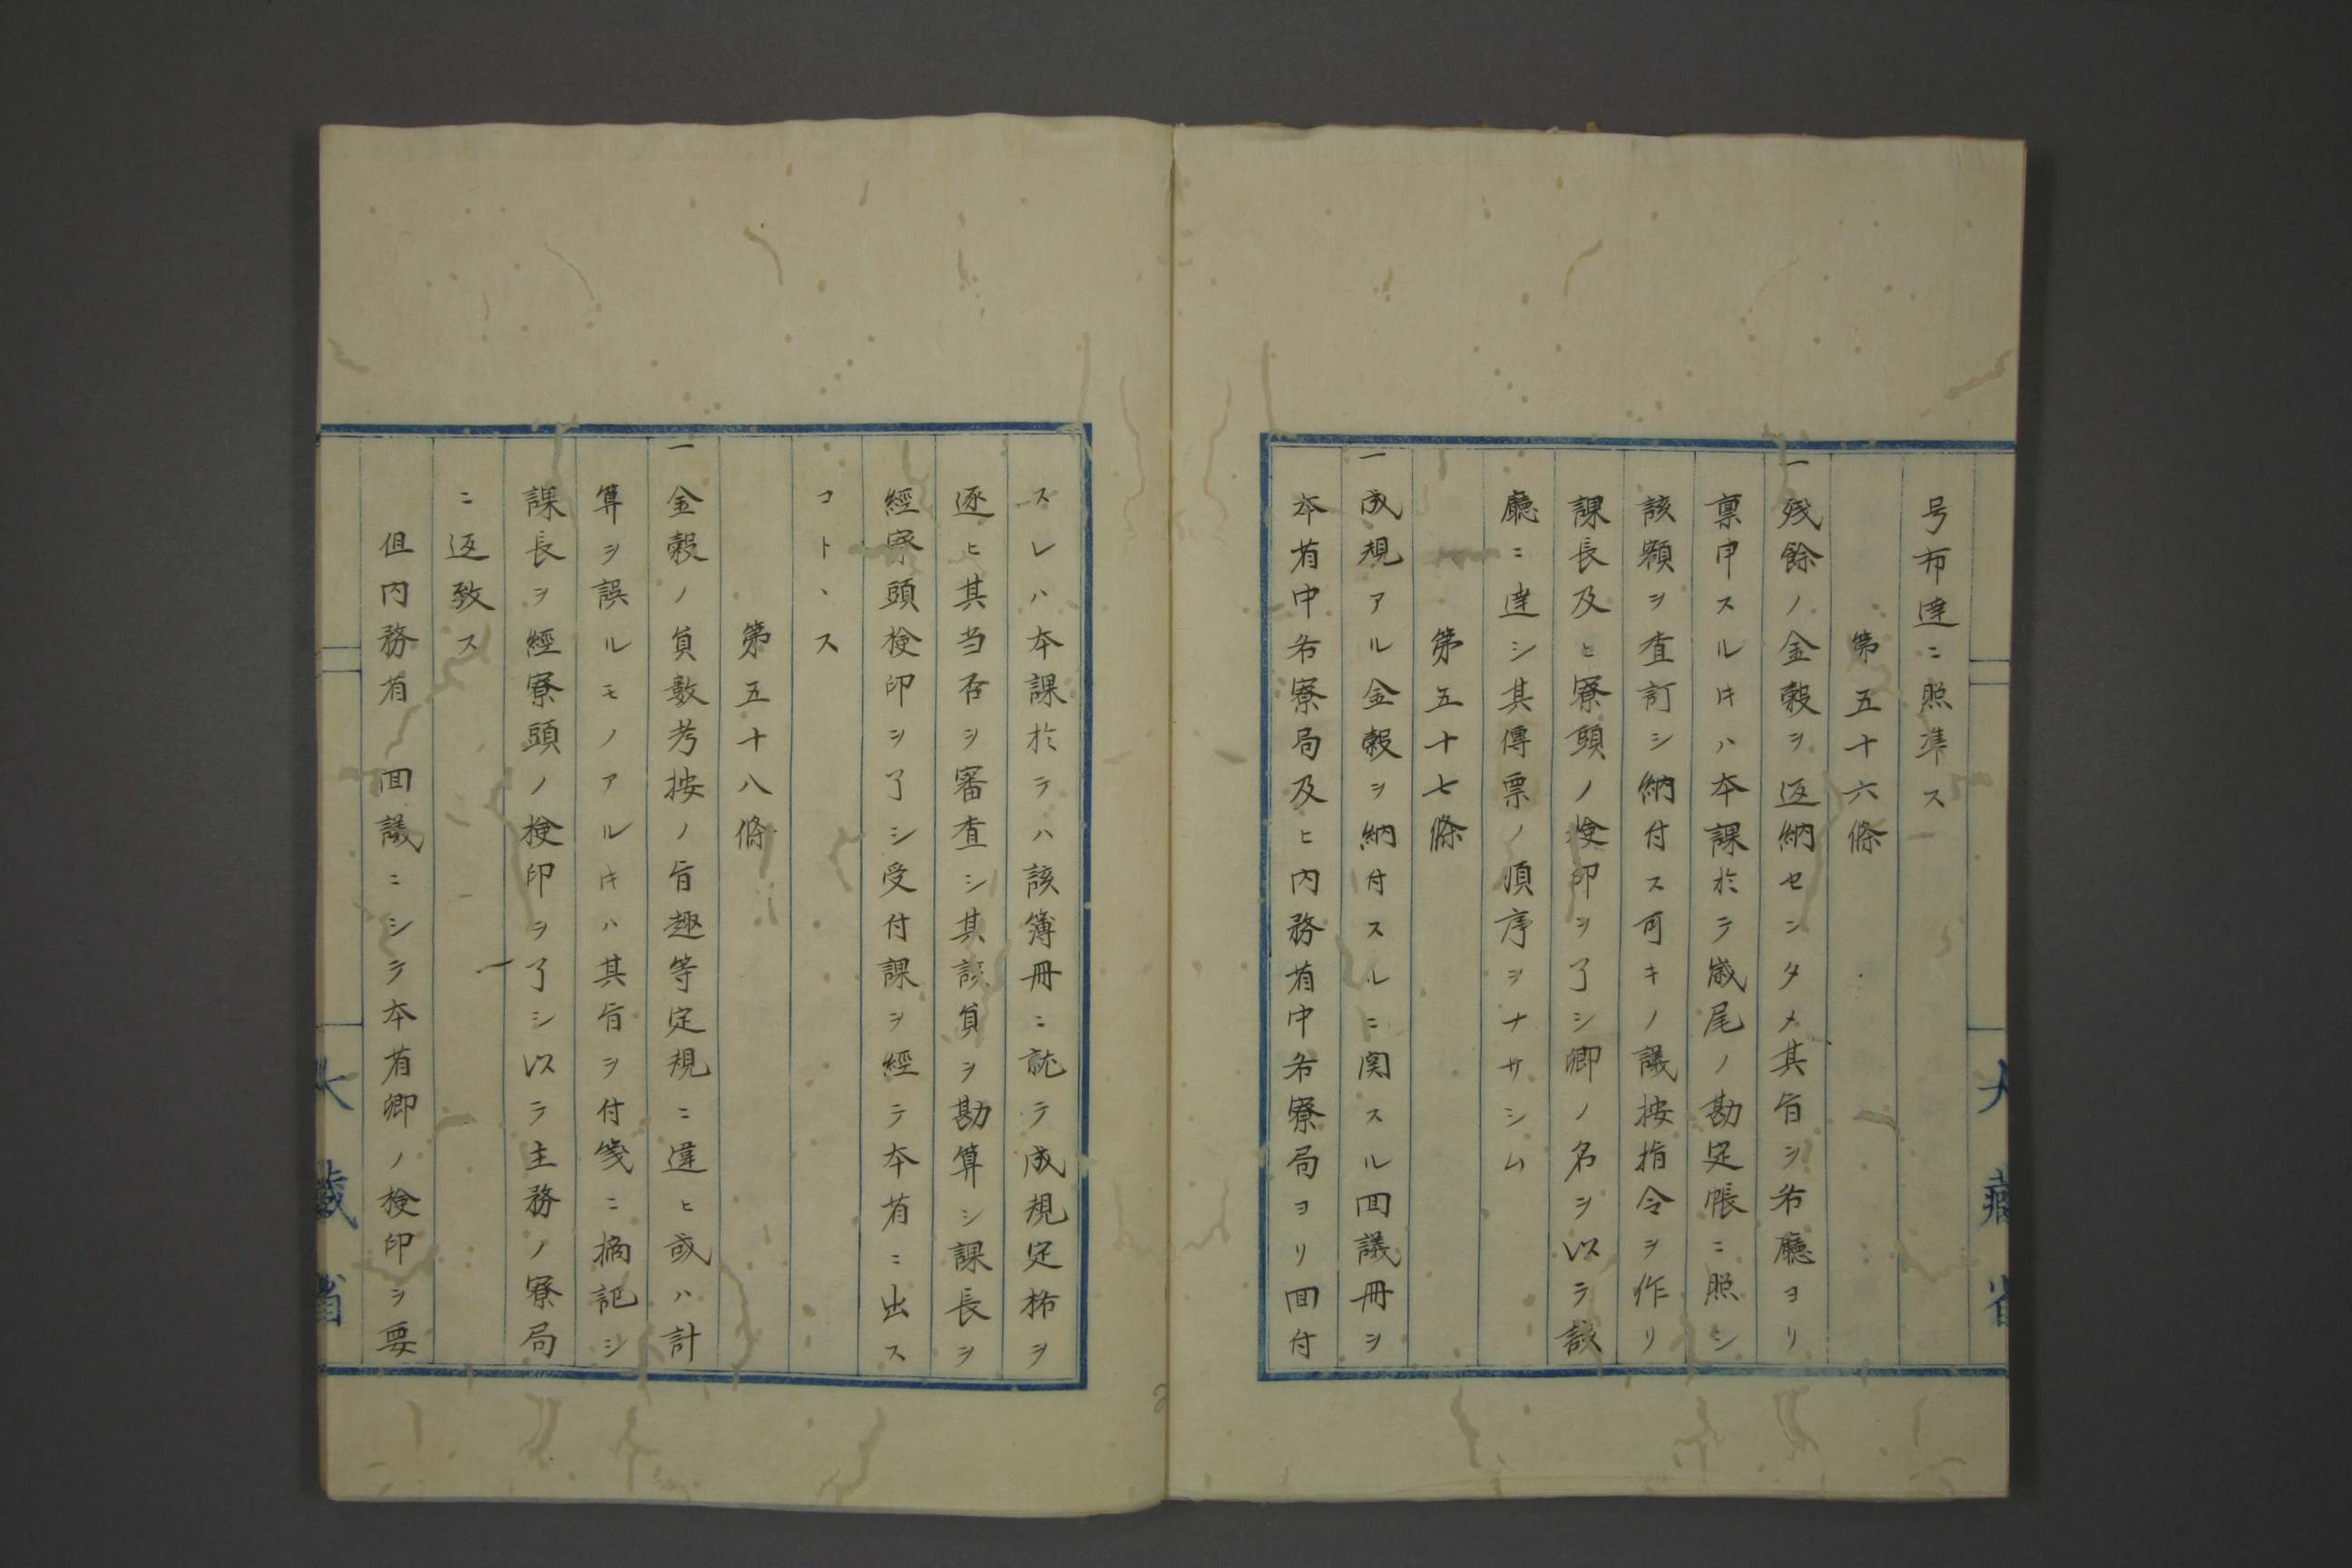 号布達ニ照準ス
第五十六條
一残餘ノ金穀ヲ返納センタメ其旨ヲ各廳ヨリ
稟申スルキハ本課於テ歳尾ノ勘定帳ニ照シ
該額ヲ査訂シ納付ス可キノ議按指令ヲ作リ
課長及ヒ寮頭ノ検印ヲ了シ卿ノ名ヲ以テ該
廳ニ達シ其傳票ノ順序ヲナサシム
第五十七條
一成規アル金穀ヲ納付スルニ関スル回議冊ヲ
本省中各寮局及ヒ内務省中各寮局ヨリ回付
スレハ本課於テハ該簿冊ニ就テ成規定格ヲ
逐ヒ其当否ヲ審査シ其該負ヲ勘算シ課長ヲ
經寮頭検印ヲ了シ受付課ヲ經テ本省ニ出ス
コトヽス
第五十八條
一金穀ノ負數考按ノ旨趣等定規ニ違ヒ或ハ計
算ヲ誤ルモノアルキハ其旨ヲ付箋ニ摘記シ
課長ヲ經寮頭ノ検印ヲ了シ以テ主務ノ寮局
ニ返致ス
但内務省 回議ニシテ本省卿ノ検印ヲ要
大藏省
大藏省